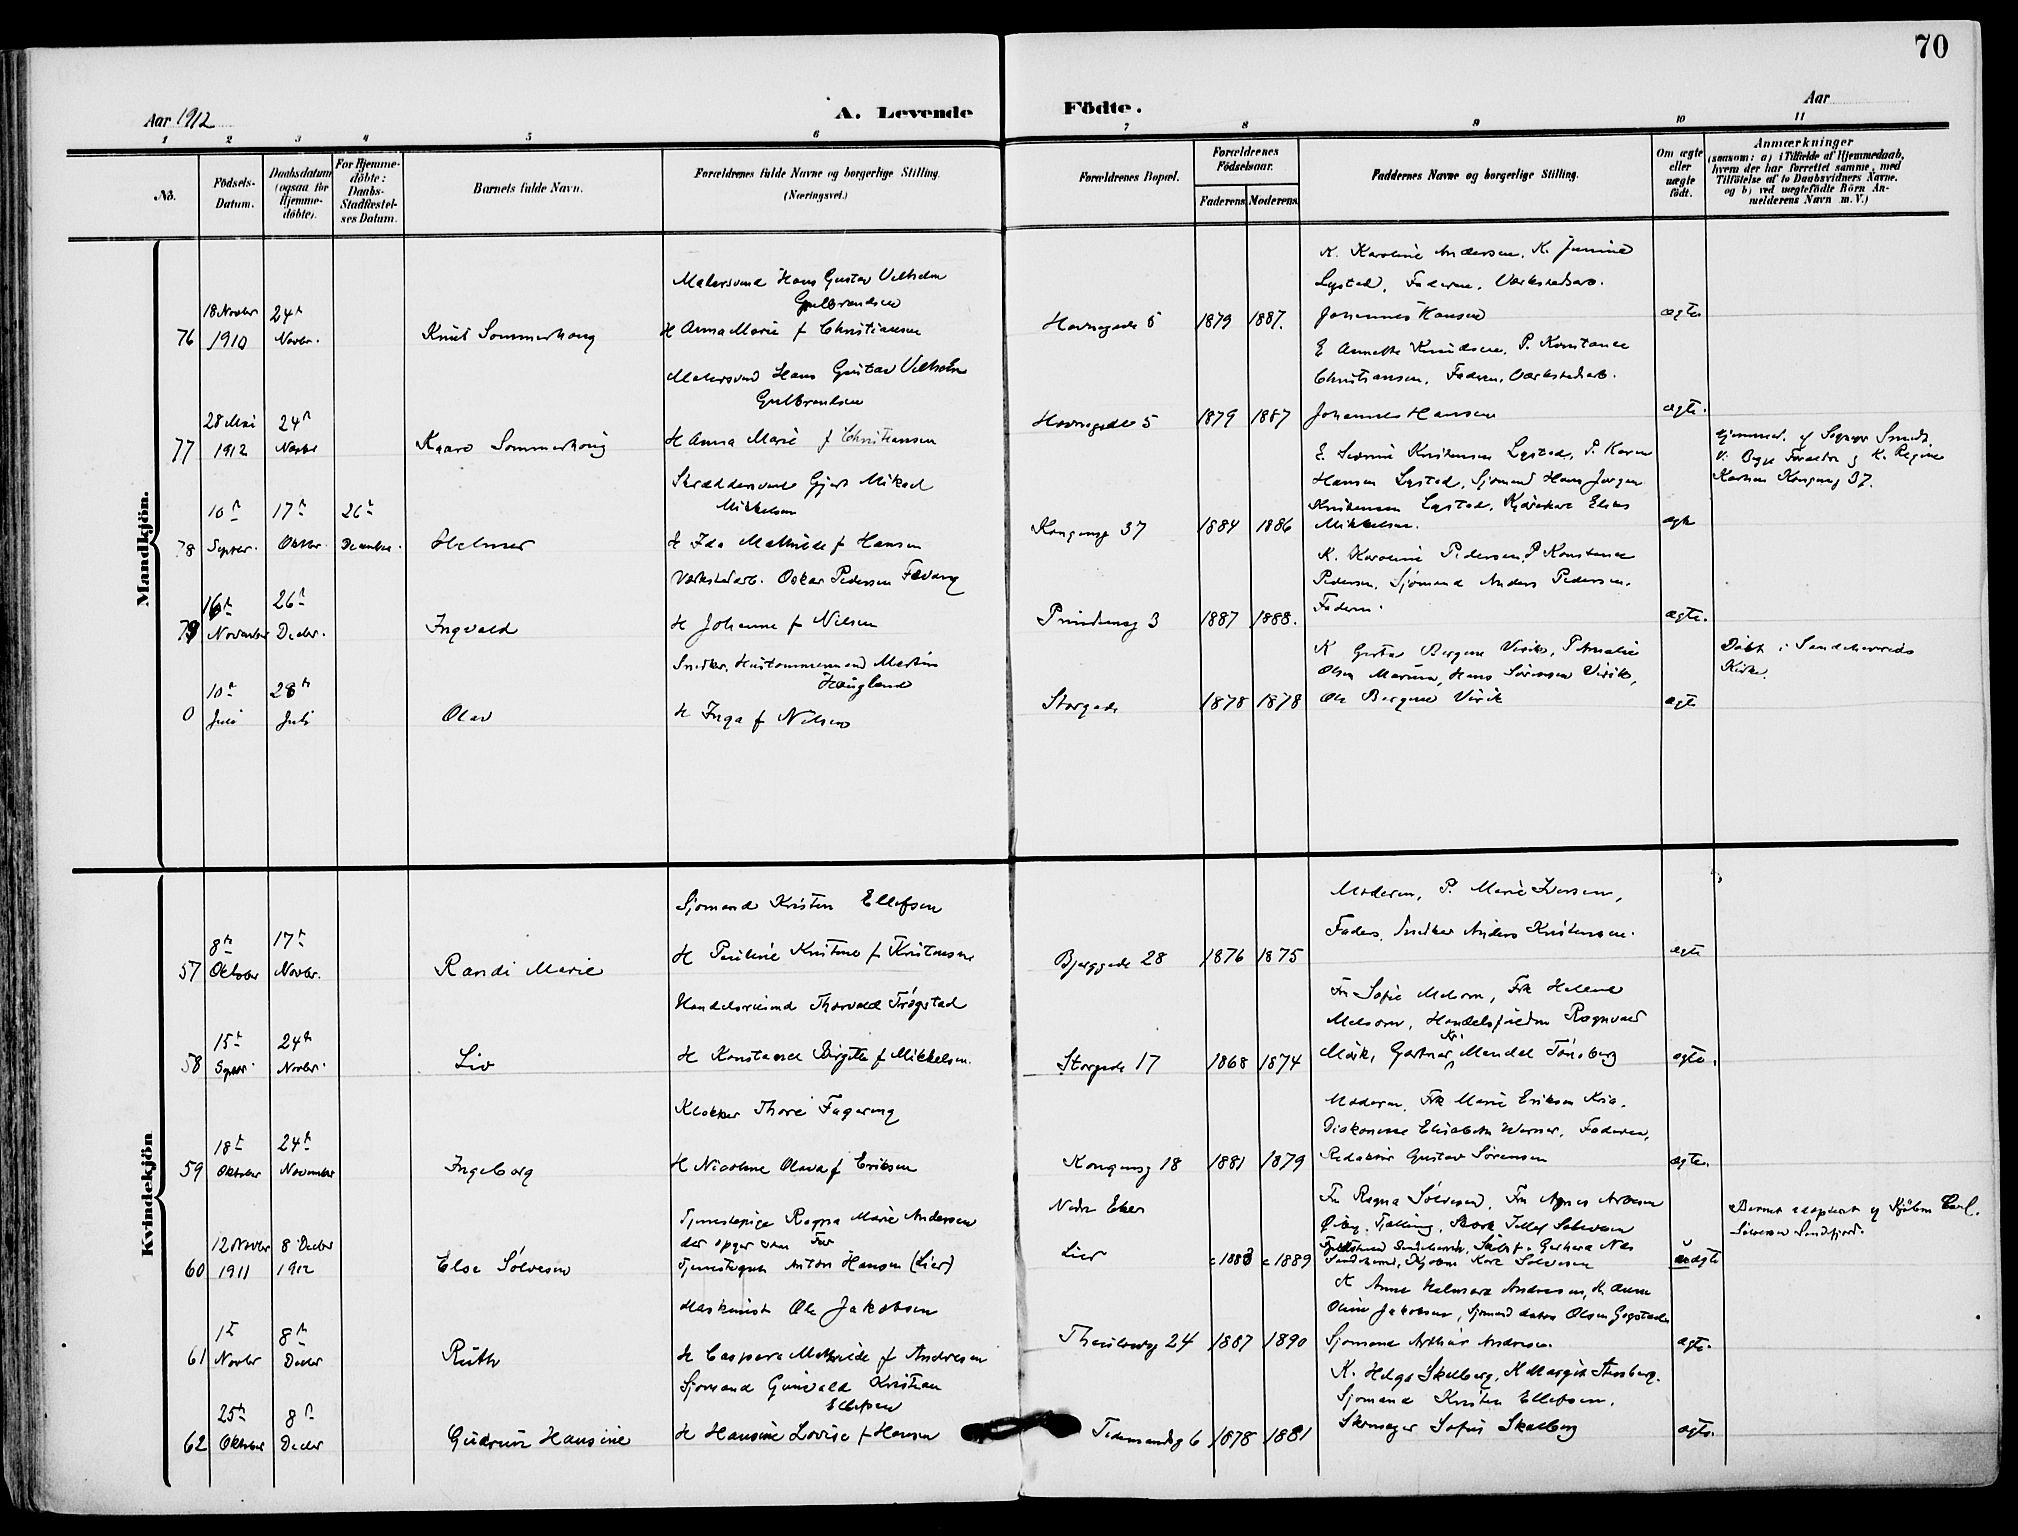 70
Aar 1912
A. Levende
Födte.
Aar
1 2 3 4 5 6 7 8 9 10 11
No.
Födsels-Datum.
Daabsdatum (ogsaa for Hjemme-döbte).
For Hjemme-döbte: Daabs-Stadfæstel-ses Datum.
Barnets fulde Navn.
Forældrenes fulde Navne og borgerlige Stilling.
(Næringsvei.)
Forældrenes Bopæl.
Forældrenes Födselsaar.
Faderens Moderens
Faddernes Navne og borgerlige Stilling.
Om ægte eller uægte födt.
Anmærkninger
(saasom: a) i Tilfælde af Hjemmedaab,
hvem der har forrettet samme, med
Tilföielse af to Daabsvidners Navne.
og b) ved uægtefödte Börn An-
melderens Navn m. V.)
Mandkjön.
76 18 Novbr 1910 24de Novbr. Knut Sommerhaug
Malersvend Hans Gustav Vilhelm
Gulbrandsen
H Anna Marie f Christiansen
Havnegade 5 1879 1887.
K. Karoline Andersen, K.
Lystad, Faderen, Værkstedsarb.
Johannes Hansen
ægte
77 28 Mai 1912 24de Novbr Kaare Sommerhaug
Malersvend Hans Gustav Vilhelm
Gulbrandsen
H Anna Marie f Christiansen
Havnegade 5 1879 1887
E Annette Knudsen, P. Konstance
Christiansen, Faderen, Værkstedsarb.
Johannes Hansen
ægte.
78 10de Septbr. 17de Oktbr. 26de Decembr. Helmer
Skræddersvend Gjert Mikael
Mikkelsen
H Ida Mathilde f Hansen
Kongensg 37 1884 1886
Kristensen Lystad, P. Karen
Hansen Lystad, Sjømand Hans Jørgen
Kristensen Lystad, Elias
Mikkelsen.
ægte
Hjemmed. af Sognepr Smidt.
V. Begge Forældre og K. Regine
Karlsen Kongensg 37.
79 16de November 26de Decbr. Ingvald
Værkstedarb. Oskar Pedersen Fevang
H Johanne f Nilsen
Prindsensg 3 1887 1888.
K. Karoline Pedersen, P Konstance
Pedersen, Sjømand Anders Pedersen,
Faderen.
ægte.
0 10de Juli 28de Juli Olav
Snedker, Hustømmermand Martin
Haugland
H Inga f Nilsen
Storgade 1878 1878
K Gurine Bergene Virik, P Amalie
Olsen Marum, Hans Sørensen Virik,
Ole Bergene Virik
ægte
Døbt i Sandeherreds
Kirke.
Kvindekjön
57 8de Oktober 17de Novbr. Randi Marie
Sjømand Kristen Ellefsen
H Pauline Kristine f Kristensen
Bjerggade 28 1876 1875
Moderen, P. Marie Iversen,
Fader, Snedker Anders Kristensen.
ægte
58 15de Septbr. 24de Novbr. Liv
Handelsreisend Thorvald Trøgstad
H Konstance Birgitte f Mikkelsen.
Storgade 17 1868 1874
Fru Sofie Melsom, Frk Helene
Melsom, Handelsfuldm Ragnvald
Mørk, Gartner Kr. Mendel Tønsberg
ægte.
59 18de Oktober 24de November Ingeborg
Klokker Thore Fagereng
H Nicoline Olava f Eriksen
Kongensg 18 1881 1879
Moderen, Frk Marie Eriksen Kria,
Diakonesse Elisabeth Werner, Faderen,
Redaktør Gustav Sørensen
ægte.
60 12 Novbr 1911 8 Decbr 1912 Else Sølvesen
Tjenestepige Ragna Marie Andersen
der opger som Far
Tjenestegut Anton Hansen (Lier)
Nedre Eker
Lier c 1883 c 1889
Fru Ragna Sølvesen, Fru Agnes Arvesen
Tjølling, Tellef Sølvesen
Sandeherred, Kjøbm Kare Sølvesen
uægte
Barnet adopteret af Kjøbm Carl
Sølvesen Sandefjord.
61 1ste Novbr 8de Decbr Ruth
Maskinist Ole Jakobsen
H Caspara Mathilde f Andresen
Thaulowsg 24 1887 1890
K Anne Helmara Andresen, K. Anne
Oline Jakobsen, Sjømand Olsen Gogstad,
Sjømand Arthur Andresen.
ægte.
62 25de Oktober 8de Decbr Gudrun Hansine
Sjømand Gunvald Kristian
Ellefsen
H Hansine Lovise f Hansen
Tidemandsg 6 1878 1881
K. Helga Skalberg, K Margit Stensberg.
Sjømand Kristen Ellefsen.
Skomager Sofus Skalberg
ægte.